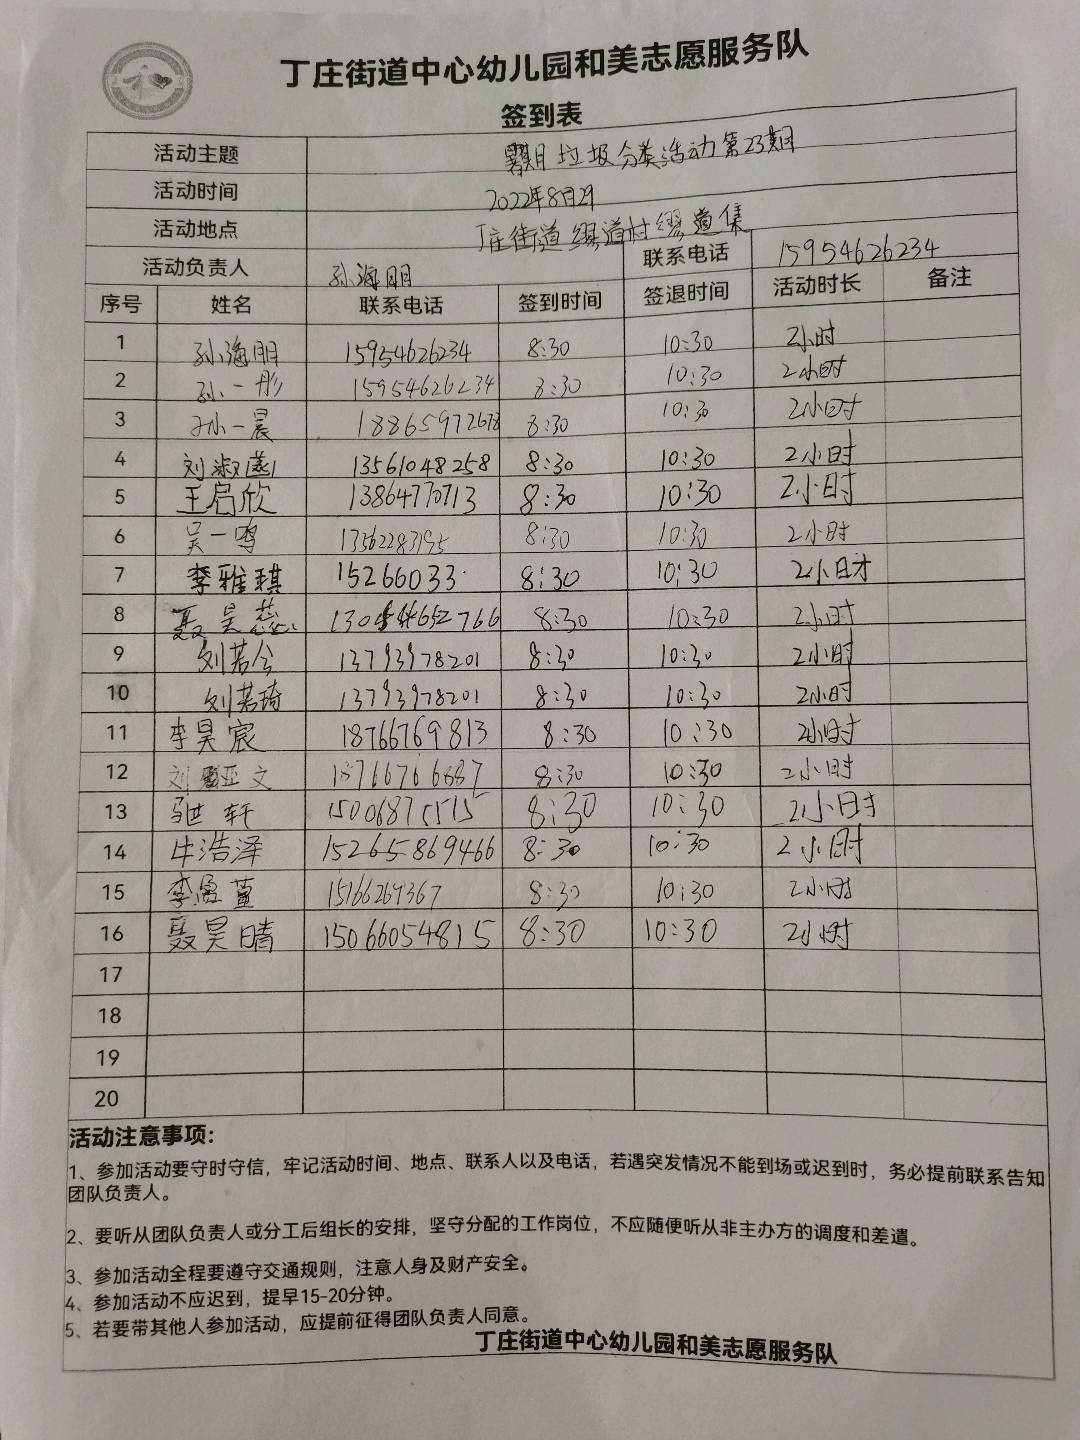 丁庄街道中心幼儿园和美志愿服务队
签到表
活动主题 垃圾分类活动第23期
活动时间 2022年8月29
活动地点 丁庄街道缪道村缪道集
活动负责人 孙海朋 联系电话 15954626234
序号 姓名 联系电话 签到时间 签退时间 活动时长 备注
1 孙海朋 15954626234 8:30 10:30 2小时
2 孙一彤 15954626234 8:30 10:30 2小时
3 孙一晨 18865972678 8:30 10:30 2小时
4 刘淑 13561048258 8:30 10:30 2小时
5 王启欣 13864770713 8:30 10:30 2小时
6 吴一鸣 13562283195 8:30 10:30 2小时
7 李雅琪 15266033 8:30 10:30 2小时
8 聂昊蕊 8:30 10:30 2小时
9 刘若兮 13793978201 8:30 10:30 2小时
10 刘若琦 13793978201 8:30 10:30 2小时
11 李昊宸 18766769813 8:30 10:30 2小时
12 刘亚文 18766766887 8:30 10:30 2小时
13 轩 15006871515 8:30 10:30 2小时
14 牛浩泽 15265869466 8:30 10:30 2小时
15 李 15166269367 8:30 10:30 2小时
16 聂昊晴 15066054815 8:30 10:30 2小时
17
18
19
20
活动注意事项:
1、参加活动要守时守信，牢记活动时间、地点、联系人以及电话，若遇突发情况不能到场或迟到时，务必提前联系告知
团队负责人。
2、要听从团队负责人或分工后组长的安排，坚守分配的工作岗位，不应随便听从非主办方的调度和差遣。
3、参加活动全程要遵守交通规则，注意人身及财产安全。
4、参加活动不应迟到，提早15-20分钟。
5、若要带其他人参加活动，应提前征得团队负责人同意。
丁庄街道中心幼儿园和美志愿服务队